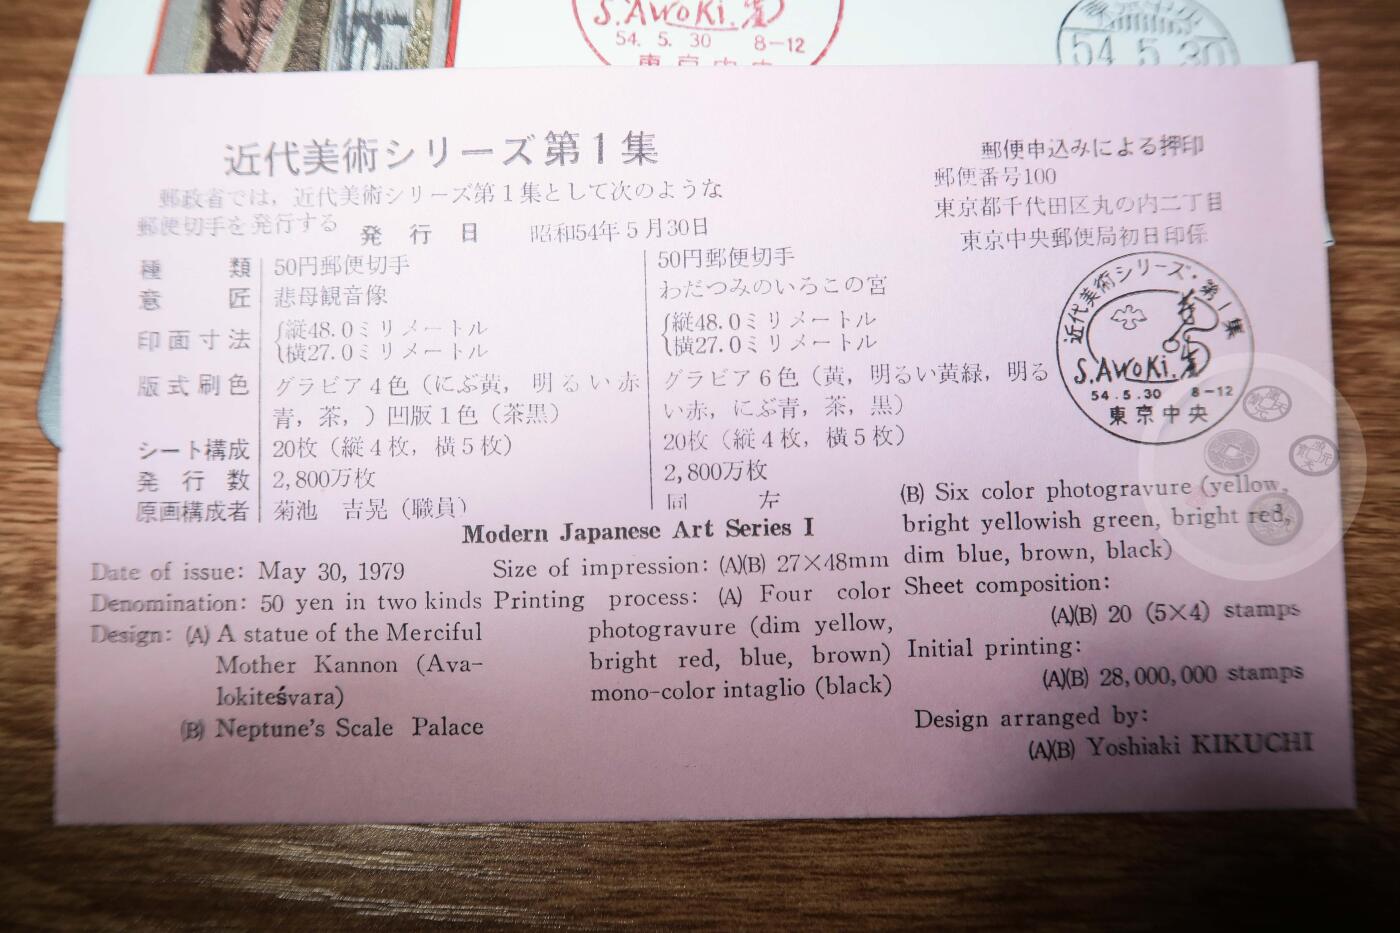 S.AWOKI.
54. 5. 30 8-12
東京中央
東京中央
54.5.30
近代美術シリーズ第1集
郵政省では，近代美術シリーズ第1集として次のような
郵便切手を発行する
発行日 昭和54年5月30日
種類 50円郵便切手 50円郵便切手
意匠 悲母観音像 わだつみのいろこの宮
印面寸法 縦48.0ミリメートル 縦48.0ミリメートル
横27.0ミリメートル 横27.0ミリメートル
版式刷色 グラビア4色（にぶ黄，明るい赤 グラビア6色（黄，明るい黄緑，明る
青，茶，）凹版1色（茶黒） い赤，にぶ青，茶，黒）
シート構成 20枚（縦4枚，横5枚） 20枚（縦4枚，横5枚）
発行数 2,800万枚 2,800万枚
原画構成者 菊池 吉晃（職員） 同左
郵便申込みによる押印
郵便番号100
東京都千代田区丸の内二丁目
東京中央郵便局初日印係
近代美術シリーズ・第1集
S.AWOKI.
54.5.30 8-12
東京中央
Modern Japanese Art Series I
Date of issue: May 30, 1979
Denomination: 50 yen in two kinds
Design: (A) A statue of the Merciful
Mother Kannon (Ava-
lokiteśvara)
(B) Neptune's Scale Palace
Size of impression: (A)(B) 27×48mm
Printing process: (A) Four color
photogravure (dim yellow,
bright red, blue, brown)
mono-color intaglio (black)
(B) Six color photogravure (yellow,
bright yellowish green, bright red,
dim blue, brown, black)
Sheet composition:
(A)(B) 20 (5×4) stamps
Initial printing:
(A)(B) 28,000,000 stamps
Design arranged by:
(A)(B) Yoshiaki KIKUCHI